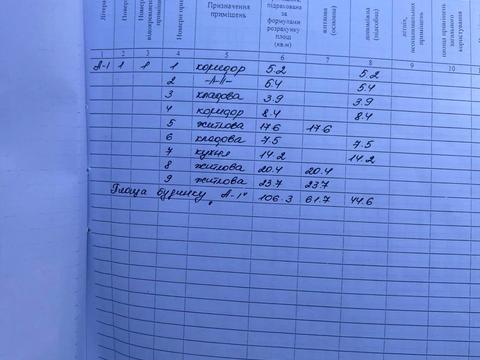 Призначення приміщень
підрахована за формулами розрахунку площ (кв.м)
житлова (основна)
1 2 3 4 5 6 7 8 9 10
А-I 1 1 1 коридор 5.2 5.2
2 -//- 5.4 5.4
3 кладова 3.9 3.9
4 коридор 8.4 8.4
5 житлова 17.6 17.6
6 кладова 7.5 7.5
7 кухня 14.2 14.2
8 житлова 20.4 20.4
9 житлова 23.7 23.7
Площа будинку „А-I" 106.3 61.7 44.6